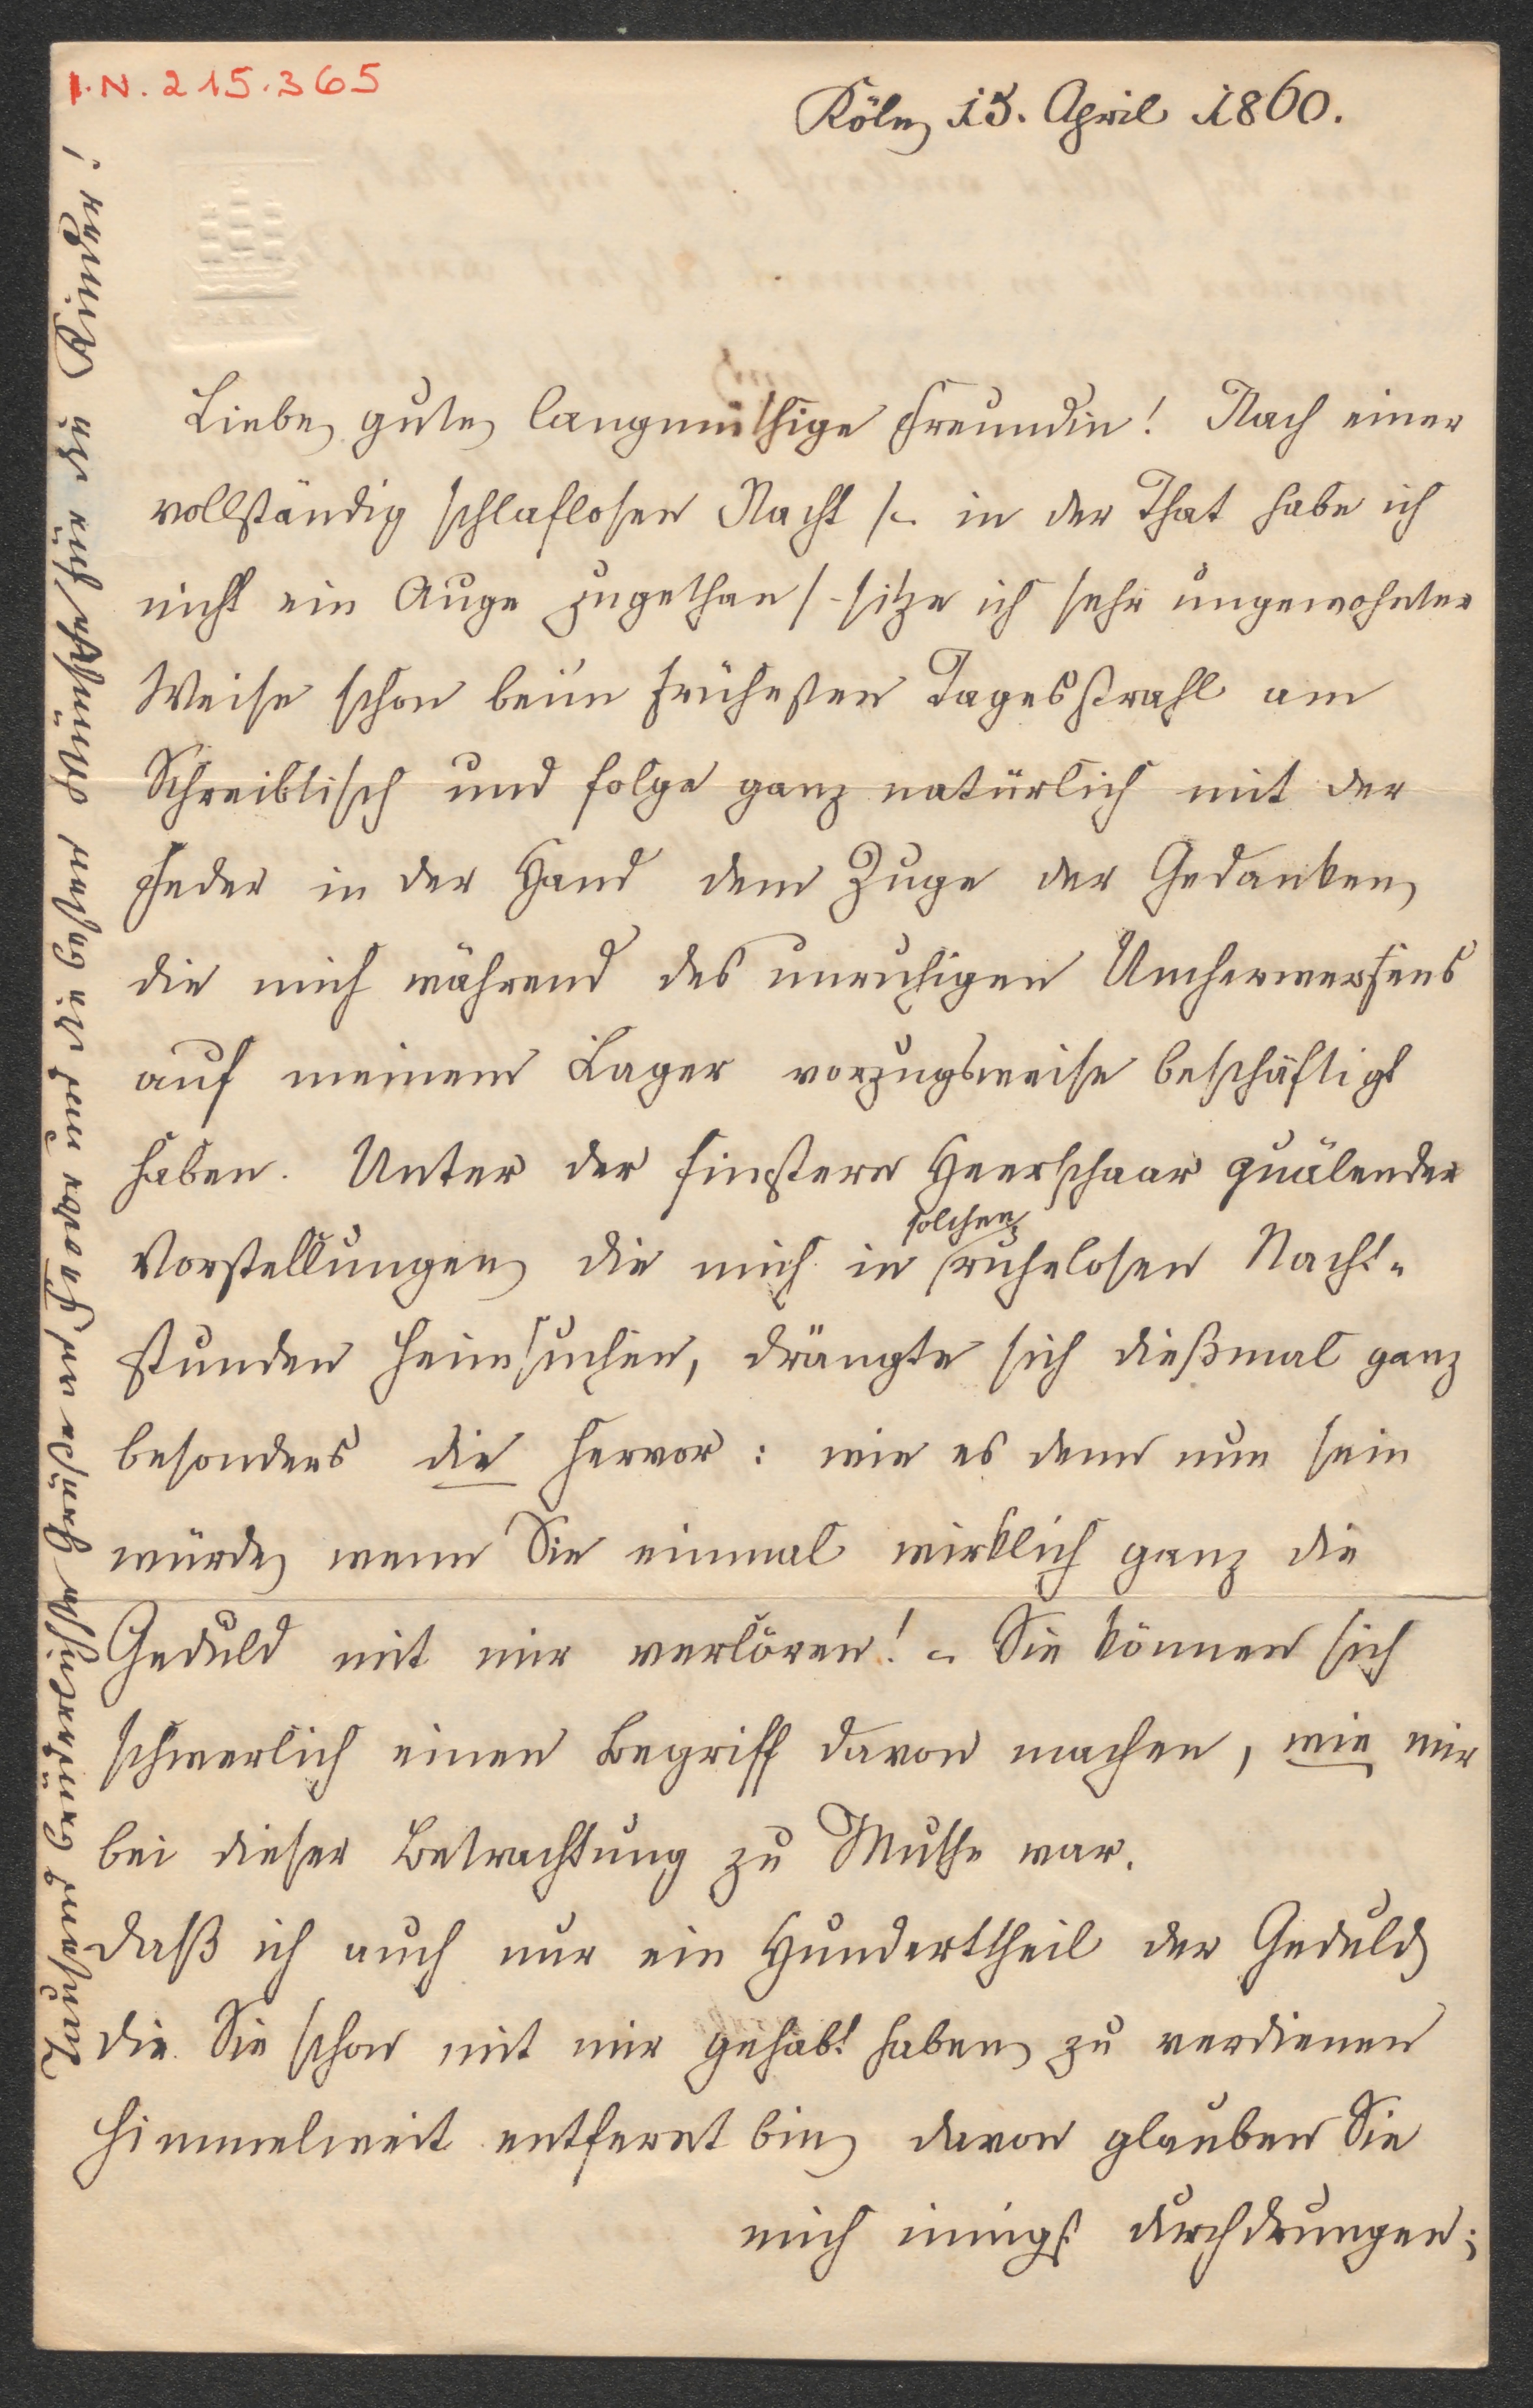 I.N. 215.365
Köln, 15. April 1860.
Liebe, gute, langmüthige Freundin! Nach einer
vollständig schlaflosen Nacht /- in der That habe ich
nicht ein Auge zugethan /- sitze ich sehr ungewohnter
Weise schon beim frühesten Tagesstrahl am
Schreibtisch und folge ganz natürlich mit der
Feder in der Hand dem Zuge der Gedanken,
die mich während des unruhigen Umherwerfens
auf meinem Lager vorzugsweise beschäftigt
haben. Unter der finstern Heerschaar quälender
Vorstellungen, die mich in solchen ruhelosen Nacht-
stunden heimsuchen, drängte sich dießmal ganz
besonders die hervor: wie es denn nun sein
würde, wenn Sie einmal wirklich ganz die
Geduld mit mir verlören! - Sie können sich
schwerlich einen Begriff davon machen, wie mir
bei dieser Betrachtung zu Muthe war.
Daß ich auch nur ein Hunderttheil der Geduld,
die Sie schon mit mir gehabt haben, zu verdienen
himmelweit entfernt bin, davon glauben Sie
mich innigst durchdrungen;